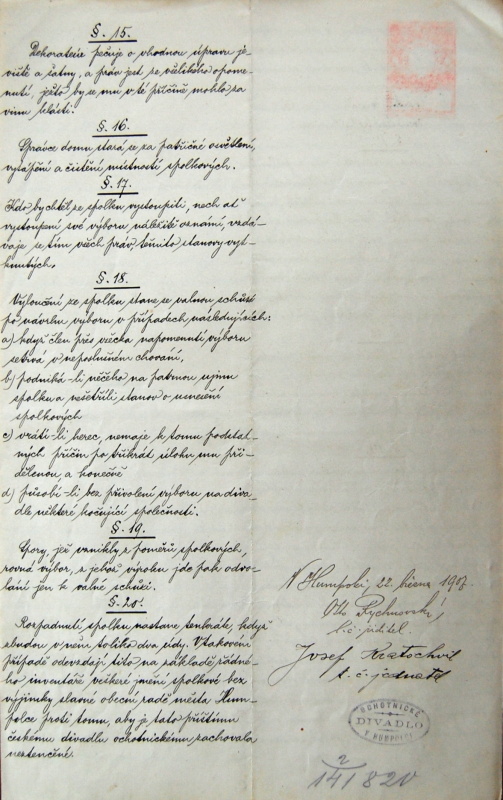 §. 15.
Dekoratéir pečuje o vhodnou úpravu je-
viště a šatny, a práv jest ze všelikého opome-
nutí, ježto by se mu v té příčině mohlo za
vinu klásti.
§. 16.
Správce domu stará se za patřičné osvětlení,
vytápění a čistění místností spolkových.
§. 17.
Kdo by chtěl ze spolku vystoupiti, nech ať
vystoupení své výboru náležitě oznámí, vzdá-
vaje se tím všech práv, těmito stanovy vyt-
knutých.
§. 18.
Vyloučení ze spolku stane se valnou schůzí
po návrhu výboru v případech následujících:
a) když člen přes všecka napomenutí výboru
setrvá v neposlušném chování,
b) podniká-li něčeho na patrnou ujmu
spolku a nešetří-li stanov o usnesení
spolkových
c) vrátí-li herec, nemaje k tomu podstat-
ných příčin po třikrát úlohu mu při-
dělenou a konečně
d) působí-li bez přivolení výboru na diva-
dle některé kočující společnosti.
§. 19.
Spory, jež vznikly z poměrů spolkových,
rovná výbor, z jehož výroku jde pak odvo-
lání jen k valné schůzi.
§. 20.
Rozpadnutí spolku nastane tenkráte, když
zbudou v něm toliko dva údy. V takovém
případě odevzdají tito na základě řádné-
ho inventáře veškeré jmění spolkové bez
výjimky slavné obecní radě města Hum-
polce proti tomu, aby je tato příštímu
českému divadlu ochotnickému zachovala
neztenčené.
V Humpolci, 22. března 1907
Otto Rychnovský,
ředitel.
Josef Kratochvíl
t. č. jednatel
OCHOTNICKÉ
DIVADLO
V HUMPOLCI
2
141820